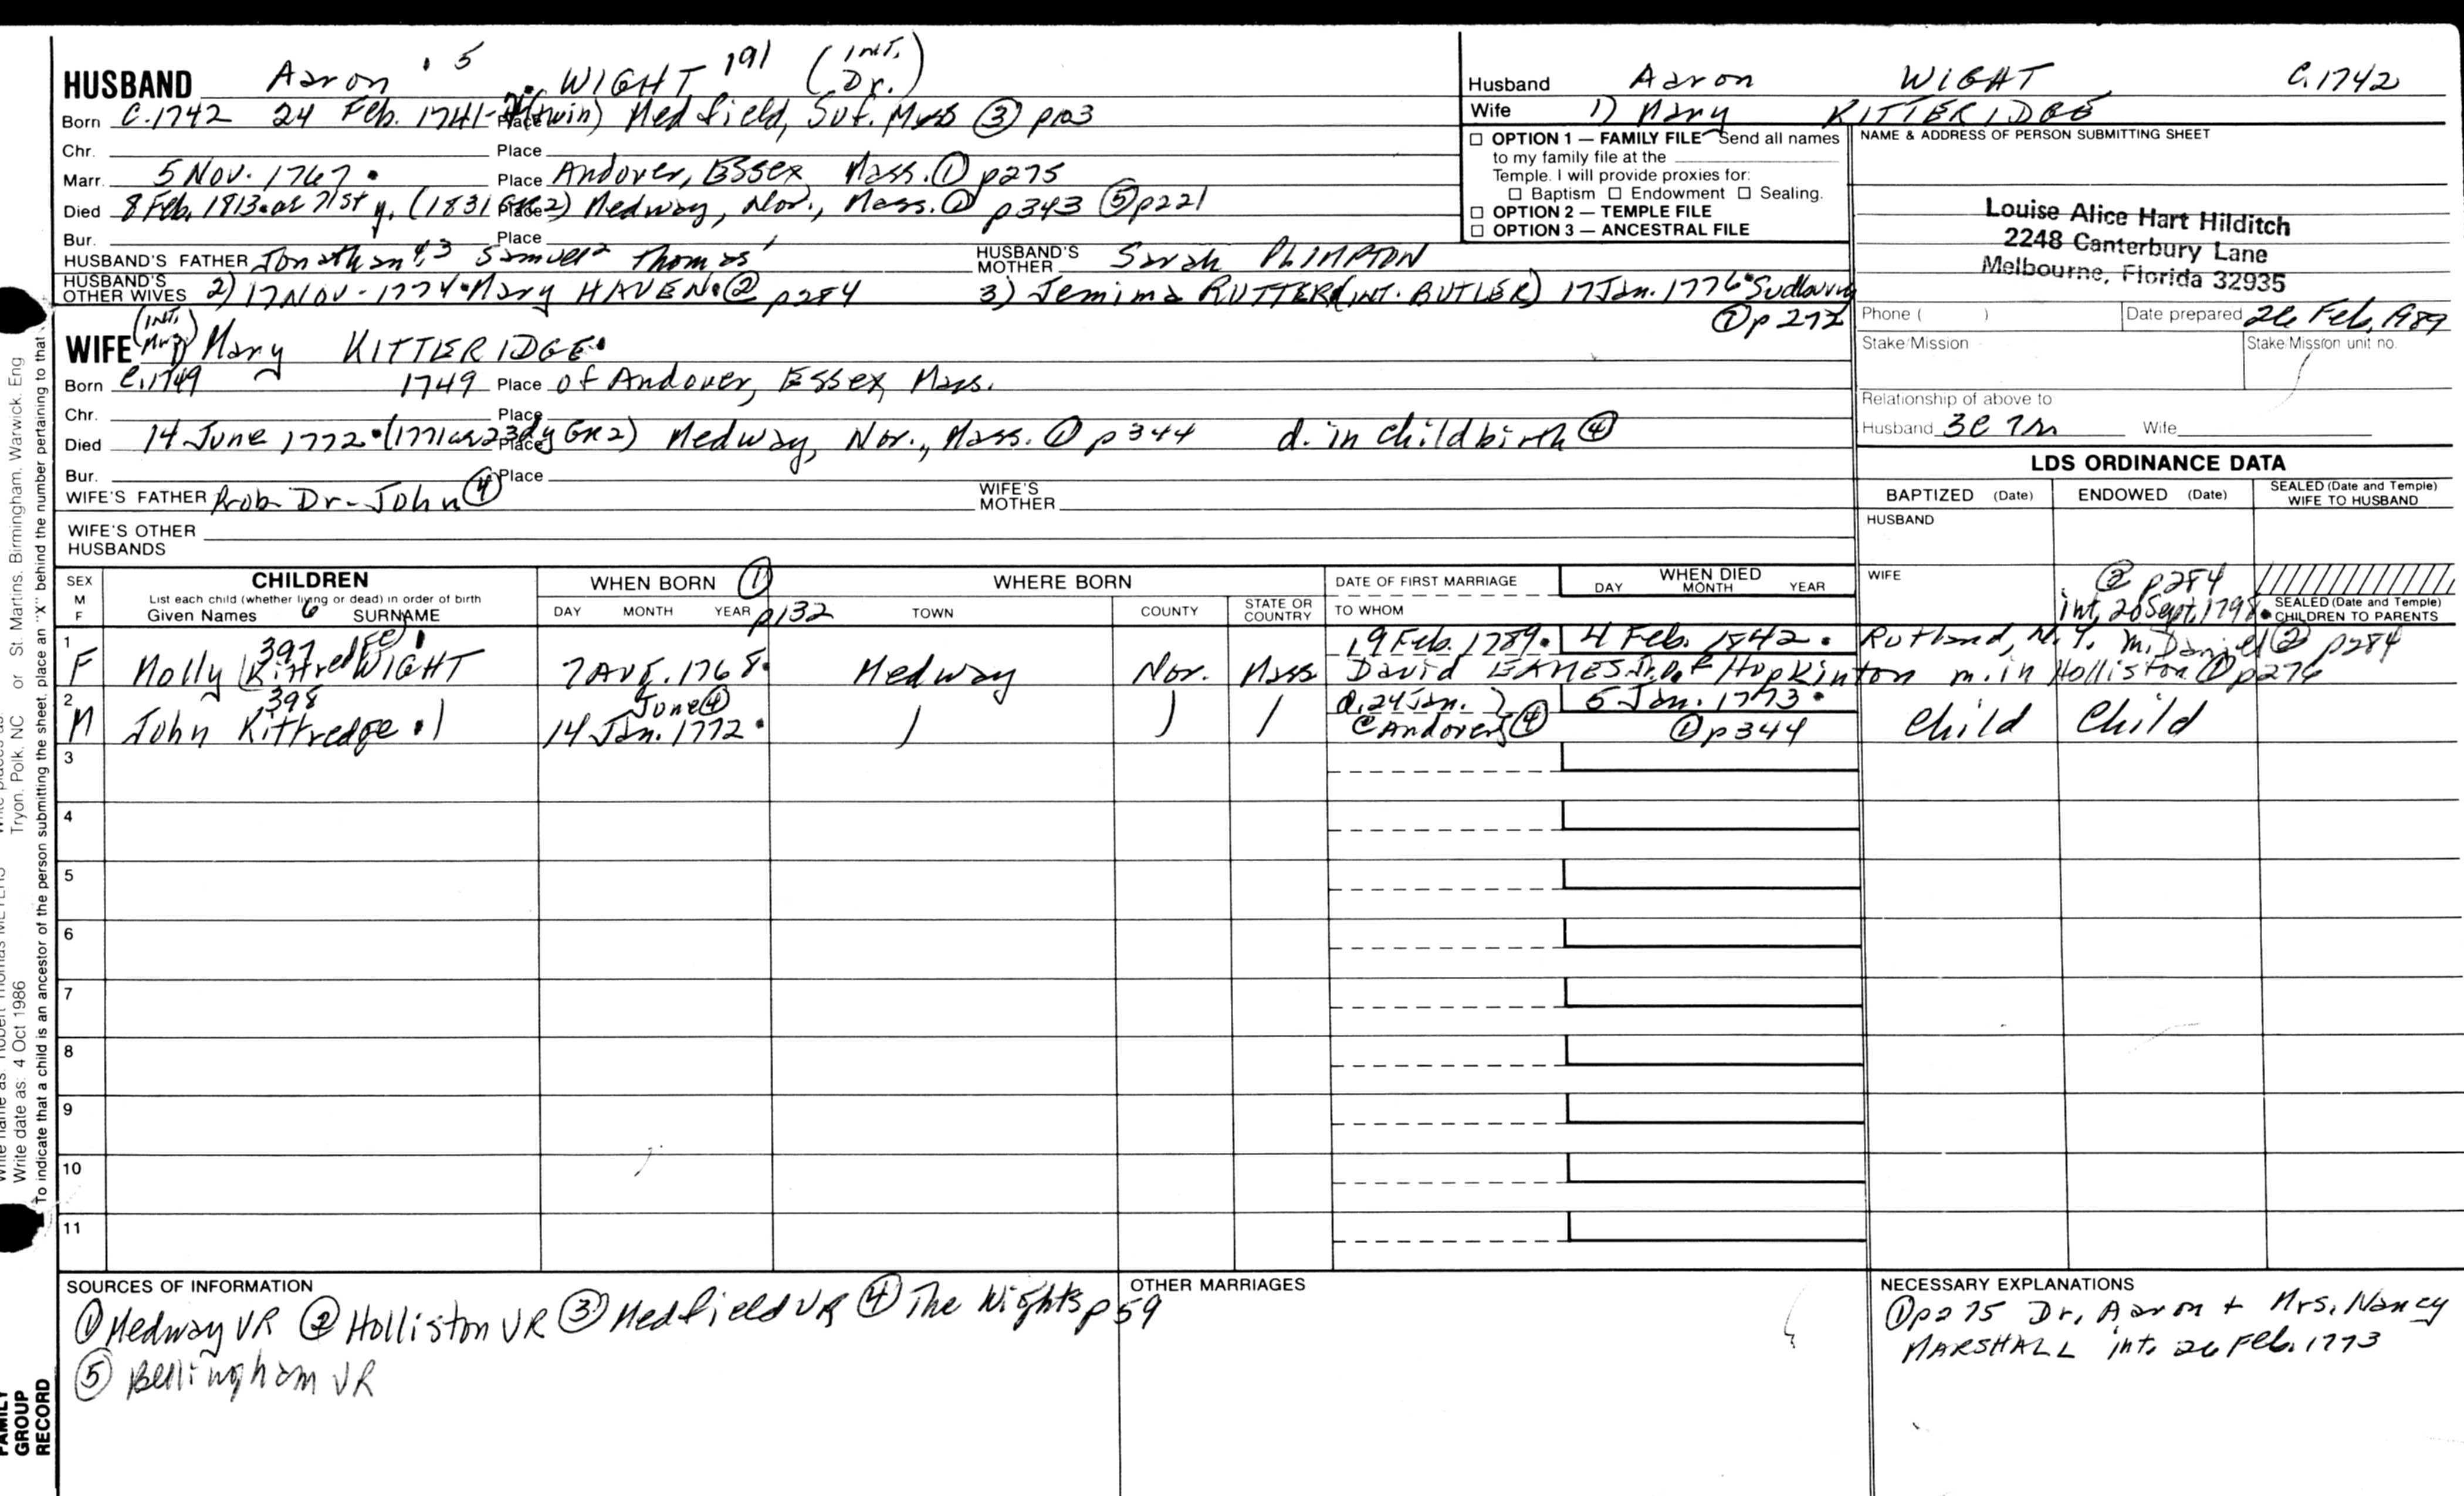 HUSBAND Aaron 5 WIGHT 191 (INT. Dr.)
Born C.1742 24 Feb. 1741- (twin) Place Medfield, Suf. Mass ③ p103
Chr. Place
Marr. 5 Nov. 1767. Place Andover, Essex Mass. ① p275
Died 8 Feb. 1813. at 71st y. (1831 GR2) Place Medway, Nor., Mass. ① p343 ⑤ p221
Bur. Place
HUSBAND'S FATHER Jonathan 4,3 Samuel 2 Thomas 1 HUSBAND'S MOTHER Sarah PLIMPTON
HUSBAND'S OTHER WIVES 2) 17 NOV - 1774. Mary HAVEN. ② p284 3) Jemima RUTTER (INT. BUTLER) 17 Jan. 1776. Sudbury
① p272
Husband Aaron WIGHT C.1742
Wife 1) Mary KITTERIDGE
☐ OPTION 1 — FAMILY FILE Send all names
to my family file at the
Temple. I will provide proxies for:
☐ Baptism ☐ Endowment ☐ Sealing.
☐ OPTION 2 — TEMPLE FILE
☐ OPTION 3 — ANCESTRAL FILE
NAME & ADDRESS OF PERSON SUBMITTING SHEET
Louise Alice Hart Hilditch
2248 Canterbury Lane
Melbourne, Florida 32935
Phone ( ) Date prepared 26 Feb. 1989
Stake/Mission Stake/Mission unit no.
Relationship of above to
Husband 3C 7R Wife
WIFE (INT. Mrs) Mary KITTERIDGE.
Born C.1749 1749 Place of Andover, Essex, Mass.
Chr. Place
Died 14 June 1772. (1771 GR2) Place Medway, Nor., Mass. ① p344 d. in childbirth ④
Bur. Place
WIFE'S FATHER Prob Dr. John ④ WIFE'S MOTHER
WIFE'S OTHER HUSBANDS
LDS ORDINANCE DATA
BAPTIZED (Date) ENDOWED (Date) SEALED (Date and Temple) WIFE TO HUSBAND
HUSBAND
WIFE ② p284
int. 20 Sept. 1798. SEALED (Date and Temple) CHILDREN TO PARENTS
SEX M F CHILDREN WHEN BORN ① WHERE BORN DATE OF FIRST MARRIAGE WHEN DIED
List each child (whether living or dead) in order of birth
Given Names 6 SURNAME DAY MONTH YEAR p132 TOWN COUNTY STATE OR COUNTRY TO WHOM DAY MONTH YEAR
1 397 19 Feb. 1789. 4 Feb. 1842. Rutland, N.Y. m. Daniel ② p284
F Molly (Kittredge) WIGHT 7 Aug. 1768. Medway Nor. Mass David EAMES of Hopkinton m. in Holliston ① p276
2 398 June ④ d. 24 Jan. 5 Jan. 1773.
M John Kittredge 14 Jan. 1772. @ Andover ④ ① p344 Child Child
3
4
5
6
7
8
9
10
11
SOURCES OF INFORMATION
① Medway VR ② Holliston VR ③ Medfield VR ④ The Wights p59
⑤ Bellingham VR
OTHER MARRIAGES
NECESSARY EXPLANATIONS
① p275 Dr. Aaron + Mrs. Nancy
MARSHALL int. 26 Feb. 1773
or St. Martins. Birmingham, Warwick. Eng
Tryon, Polk, NC
Write date as: 4 Oct 1986
To indicate that a child is an ancestor of the person submitting the sheet, place an "X" behind the number pertaining to that
FAMILY
GROUP
RECORD